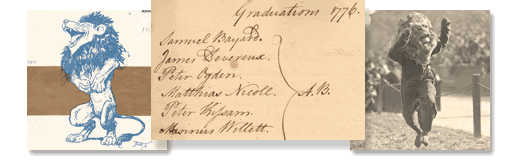 Graduations 1776.
Samuel Bayard.
James Devereux.
Peter Ogden.
Matthias Nicoll.
Peter Kissam.
Marinus Willett.
A.B.